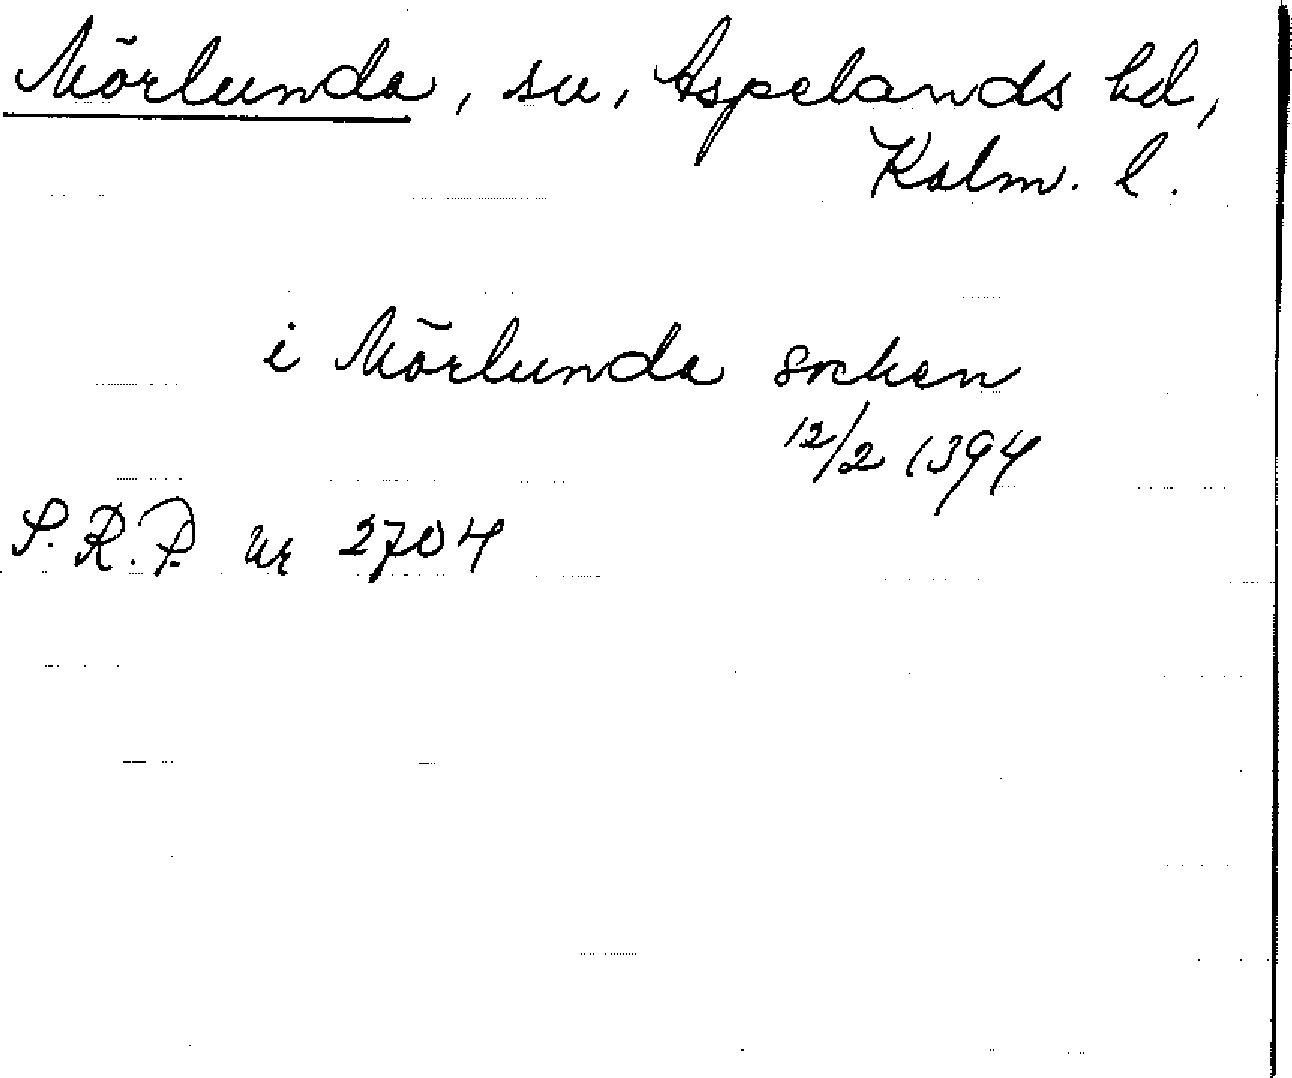 Mörlunda, sn, Aspelands hd,
Kalm. l.
i Mörlunda socken
12/2 1394
S.R.P. nr 2704